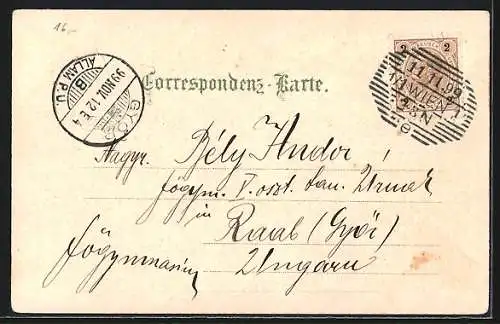 16.-
2 2
11.11.99
1/1 WIEN 1
3.N
e
GYŐR
99 NOV. 12 E. 4
B
ÁLLAM P.U.
Correspondenz-Karte.
Nagyr. Bély Andor
főgym. V. oszt. tan. Urnak
in
Raab (Győr)
főgymnasium
Ungarn